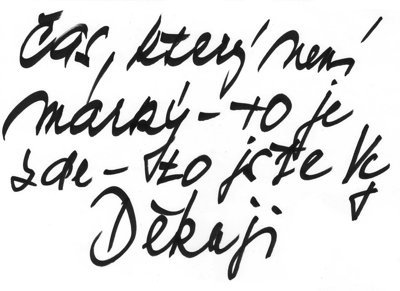 Čas, který není
márný – to je
zde – to jste Vy
Děkuji